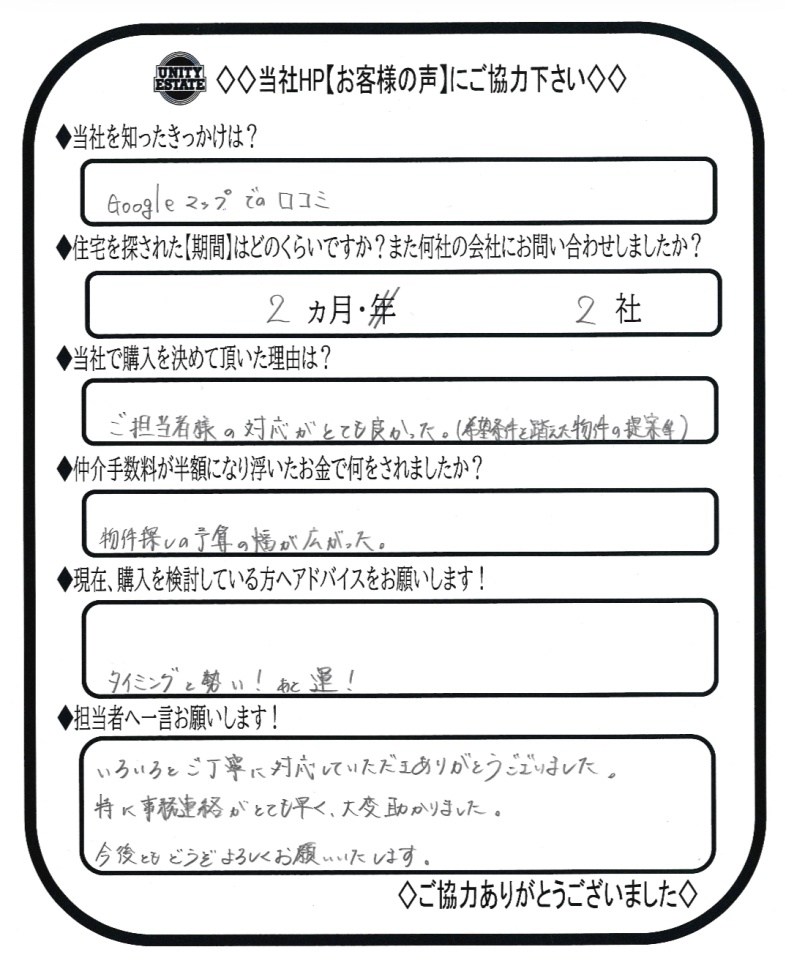 UNITY
ESTATE
◇◇当社HP【お客様の声】にご協力下さい◇◇
◆当社を知ったきっかけは？
Googleマップでの口コミ
◆住宅を探された【期間】はどのくらいですか？また何社の会社にお問い合わせしましたか？
2 ヵ月・年 2 社
◆当社で購入を決めて頂いた理由は？
ご担当者様の対応がとても良かった。(希望条件を踏えた物件の提案等)
◆仲介手数料が半額になり浮いたお金で何をされましたか？
物件探しの予算の幅が広がった。
◆現在、購入を検討している方へアドバイスをお願いします！
タイミングと勢い！あと運！
◆担当者へ一言お願いします！
いろいろとご丁寧に対応していただきありがとうございました。
特に事務連絡がとても早く、大変助かりました。
今後ともどうぞよろしくお願いいたします。
◇ご協力ありがとうございました◇